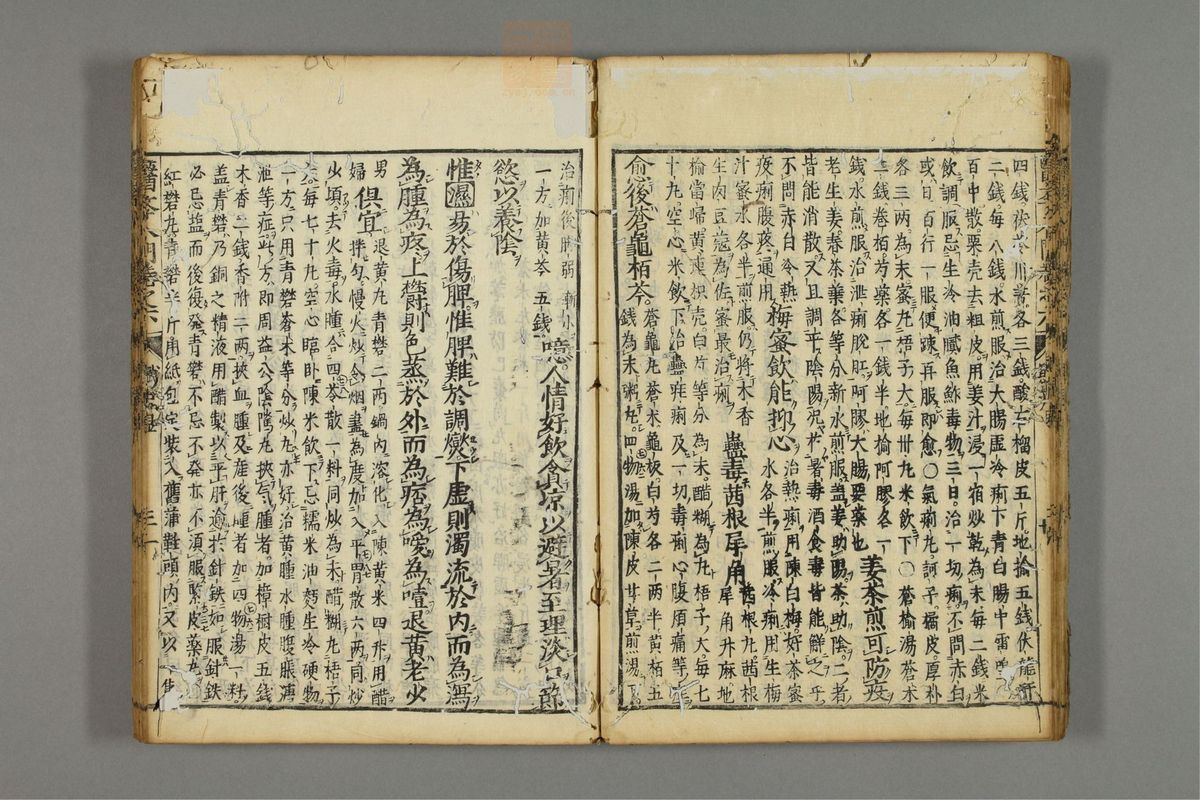 四錢茯苓川芎各三錢酸石榴皮五斤地榆五錢伏龍肝
二錢每八錢水煎服治大腸虛冷痢下青白腸中雷鳴
百中散粟壳去粗皮用姜汁浸一宿炒乾為末每二錢米
飲調服忌生冷油膩魚鮓毒物三日治一切痢不問赤白
或日百行一服便疎再服即愈○氣痢丸訶子橘皮厚朴
各三兩為末蜜丸梧子大每卅丸米飲下○蒼榆湯蒼朮
三錢卷栢芍藥各一錢半地榆阿膠各一
錢水煎服治泄痢脫肛阿膠大腸要藥也 姜茶煎可防疫
老生姜春茶葉各等分新水煎服盖姜助陽茶助陰二者
皆能消散又且調平陰陽况於暑毒酒食毒皆能觧之乎
不問赤白冷熱
疫痢腹疼通用 梅蜜飲能抑心 治熱痢用陳白梅好茶蜜
水各半煎服冷痢用生梅
汁蜜水各半煎服仍將木香
生肉豆蔻為佐蜜最治痢 蠱毒茜根犀角 茜根九茜根
犀角升麻地
榆當歸黃連枳壳白芍等分為末醋糊為丸梧子大每七
十丸空心米飲下治蠱疰痢及一切毒痢心腹煩痛等
愈後蒼龜栢芩 蒼龜丸蒼朮龜板白芍各二兩半黃栢五
錢為末粥丸四物湯加陳皮甘草煎湯下
治痢後脚弱
一方加黃芩五錢 噫人情好飲食凉以避暑至理淡口節
慾以養陰
惟濕易於傷脾惟脾難於調爕下虛則濁流於內而為瀉
為腫為疼上欝則色蒸於外而為痞為噯為噎退黃老少
男
婦 俱宜 退黃丸青礬二兩鍋內溶化入陳黃米四升用醋
拌匀慢火炒令烟盡為度加入平胃散六兩同炒
火頃去火毒水腫合四苓散一料同炒為末醋糊丸梧子
大每七十丸空心臨卧陳米飲下忌糯米油麪生冷硬物
一方只用青礬蒼朮等分炒丸亦好治黃腫水腫腹脹溏
泄等症此方即周益公陰隲丸挾气腫者加樟樹皮五錢
木香二錢香附二兩挾血腫及産後腫者加四物湯一料
盖青礬乃銅之精液用醋製以平肝逾於針鉄如服針鉄
必忌盐而後復發青礬不忌不發亦不須服緊皮藥也
紅礬丸青礬半斤用紙包定装入舊蒲鞋頭內又以